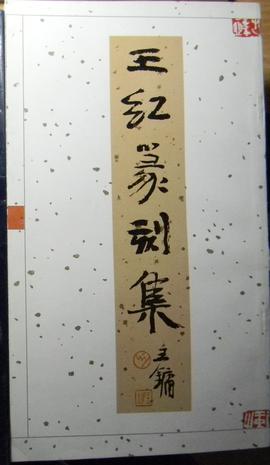 王红篆刻集
王镛